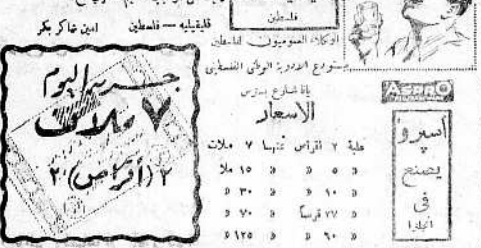 فلسطين
قلقيلية — فلسطين امين شاكر بكر
الوكلاء العموميون لفلسطين
مستودع الادوية الوطني الفلسطيني
يافا شارع بسترس
الاسعار
علبة ٢ اقراص ثمنها ٧ ملات
» ٥ » » ١٥ ملا
» ١٠ » » ٣٠ »
» ٢٧ قرصا » ٧٠ »
» ٦٠ » » ١٢٥ »
ASPRO
اسبرو
يصنع
في
انجلترا
جربه اليوم
٧ ملات
٢ (أقراص) ٢